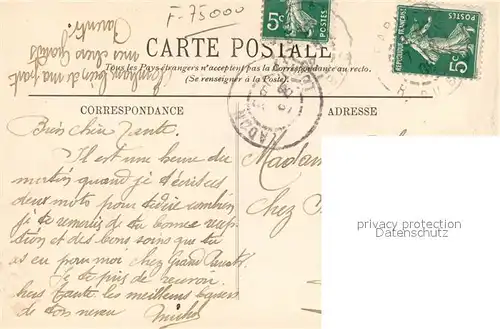 F-75000
5c
REPUBLIQUE FRANÇAISE
POSTES
5c
CARTE POSTALE
Tous les Pays étrangers n'acceptent pas la Correspondance au recto.
(Se renseigner à la Poste).
CORRESPONDANCE
ADRESSE
Bien chère Tante.
Il est une heure du
matin quand je t'écris ces
deux mots pour te dire combien
je te remercie de ta bonne récep
tion et des bons soins que tu
as eu pour moi chez Grand
Je te prie de recevoir
chère Tante les meilleurs baisers
de ton neveu Michel
Madam
chez
privacy protection
Datenschutz